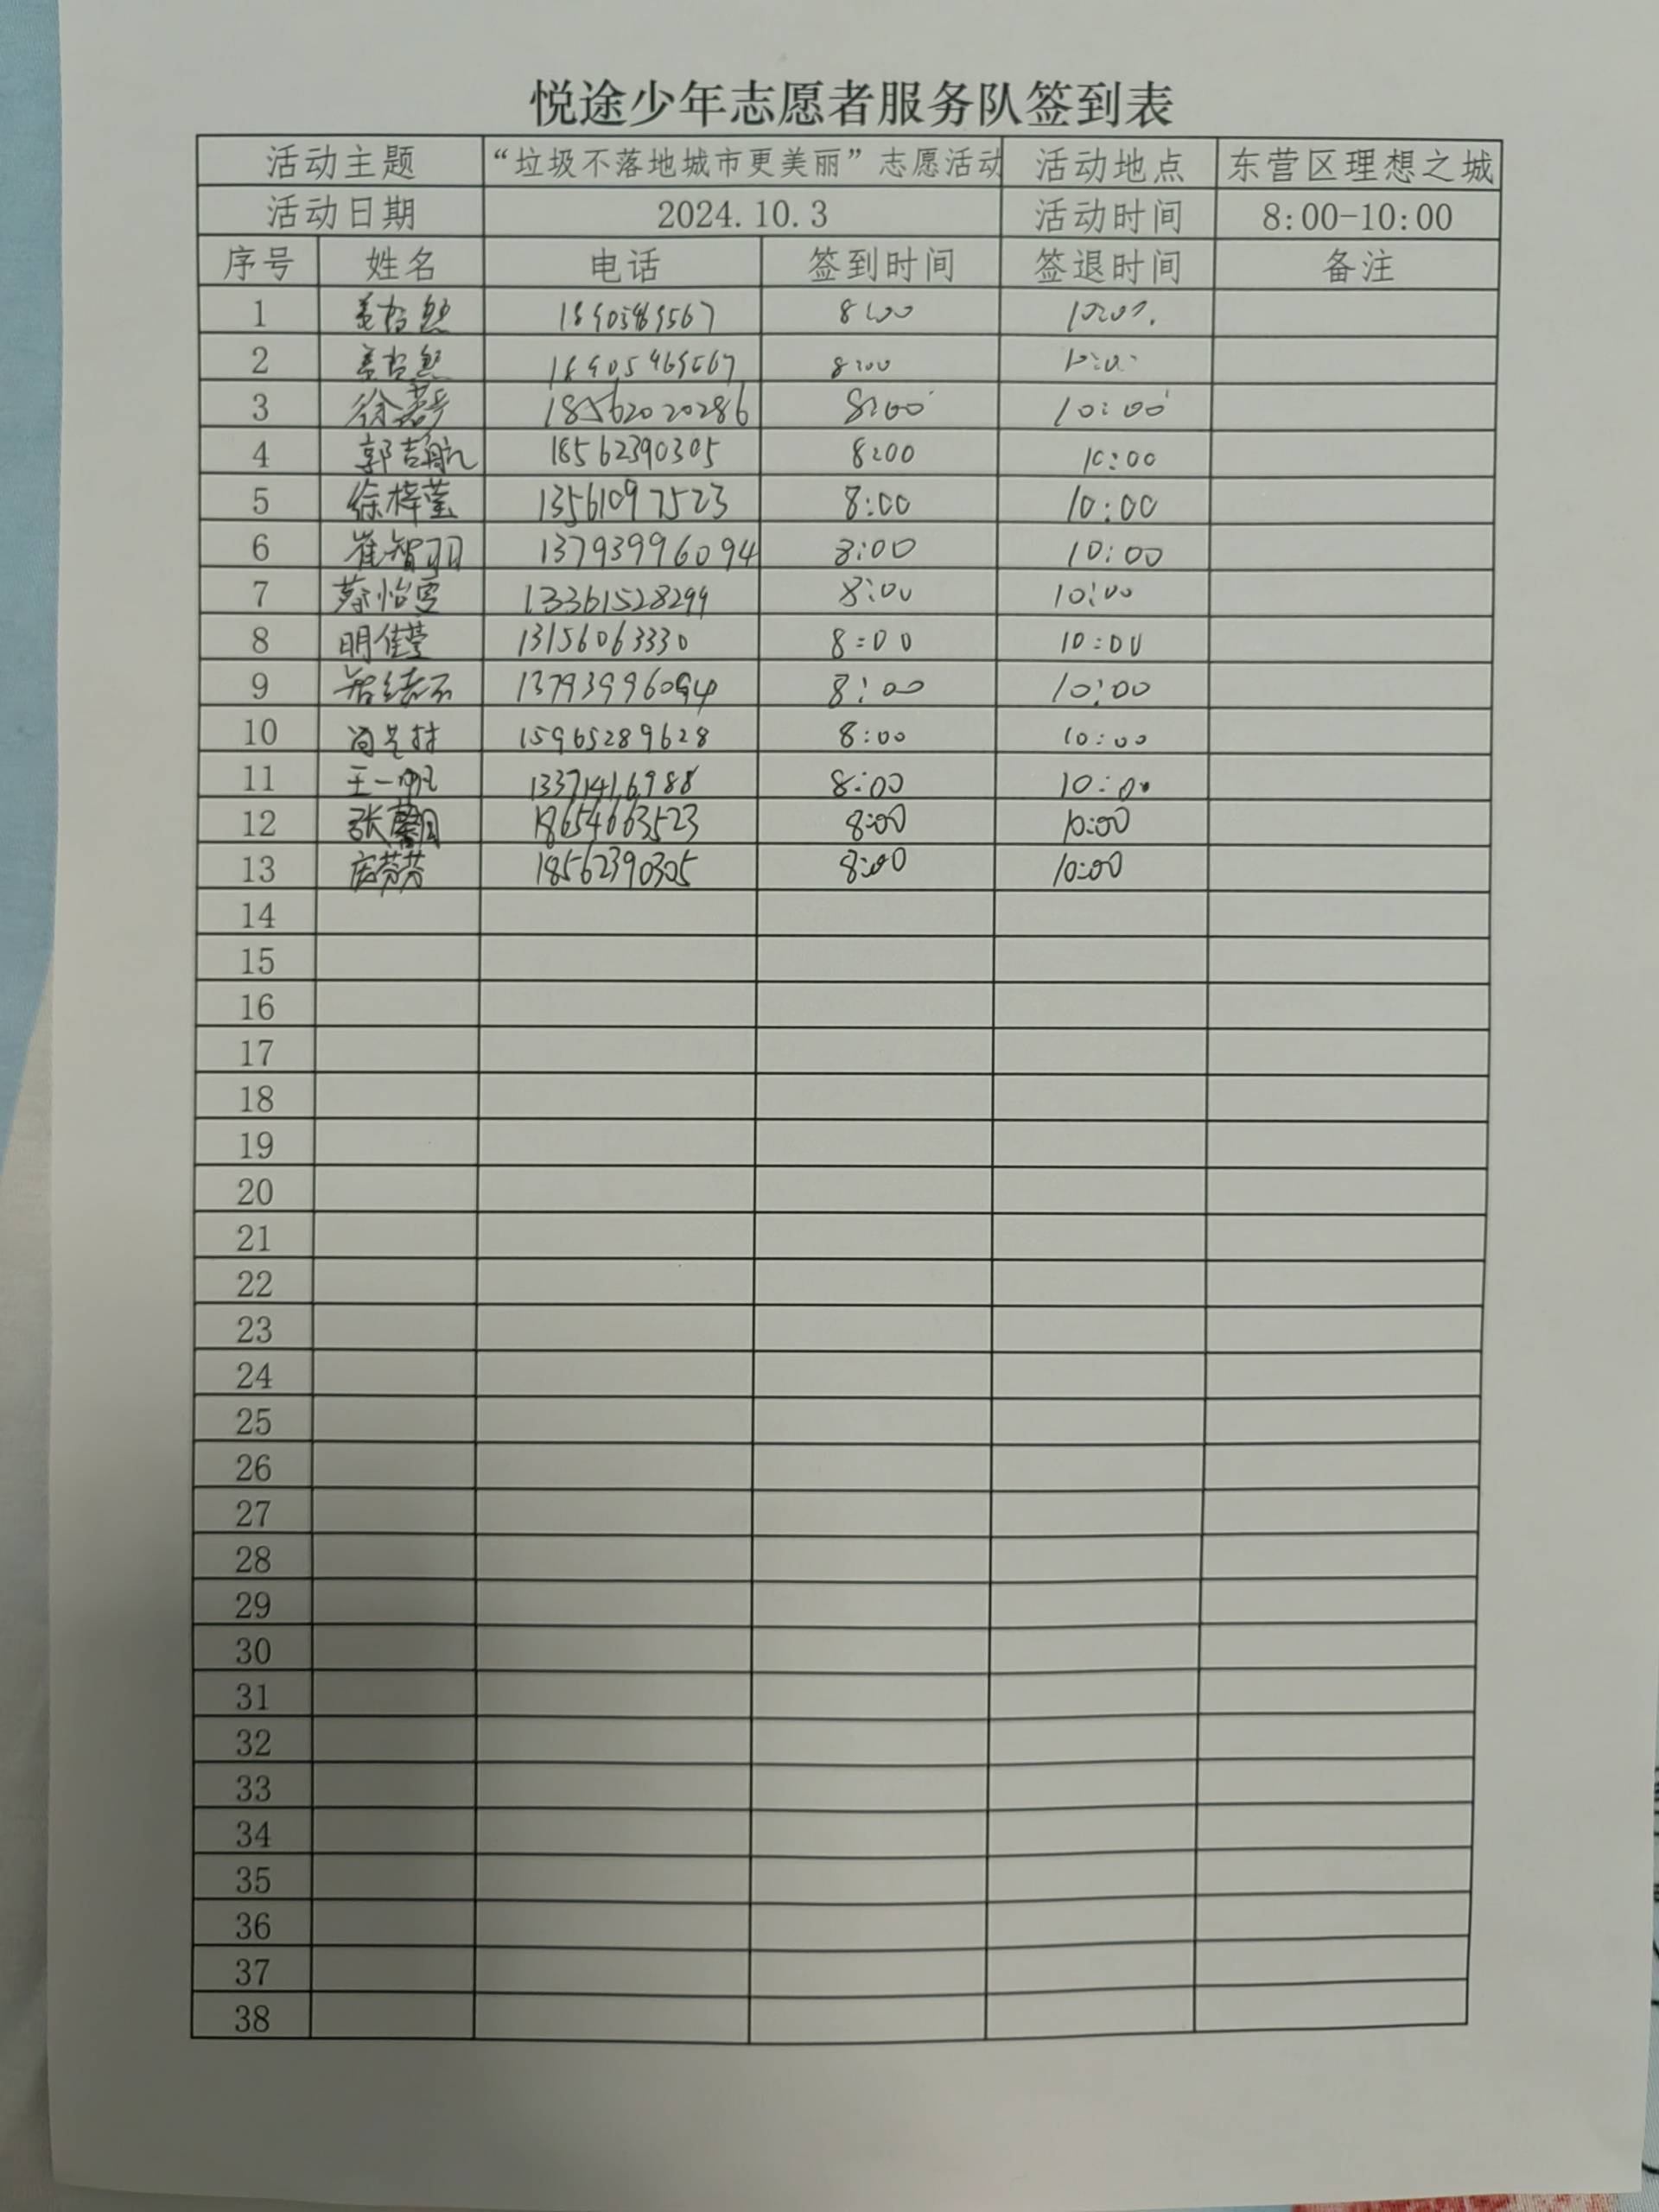 悦途少年志愿者服务队签到表
活动主题 “垃圾不落地城市更美丽”志愿活动 活动地点 东营区理想之城
活动日期 2024.10.3 活动时间 8:00-10:00
序号 姓名 电话 签到时间 签退时间 备注
1 8:00
2 18905469567 8:00
3 18562020286 8:00 10:00
4 郭吉航 18562390305 8:00 10:00
5 徐梓莹 13561097523 8:00 10:00
6 崔智羽 13793996094 8:00 10:00
7 蔡怡雪 13361528299 8:00 10:00
8 明佳莹 13156063330 8:00 10:00
9 13793996094 8:00 10:00
10 15965289628 8:00 10:00
11 王一帆 13371416988 8:00 10:00
12 张 18654663523 8:00 10:00
13 芬芬 18562390305 8:00 10:00
14
15
16
17
18
19
20
21
22
23
24
25
26
27
28
29
30
31
32
33
34
35
36
37
38